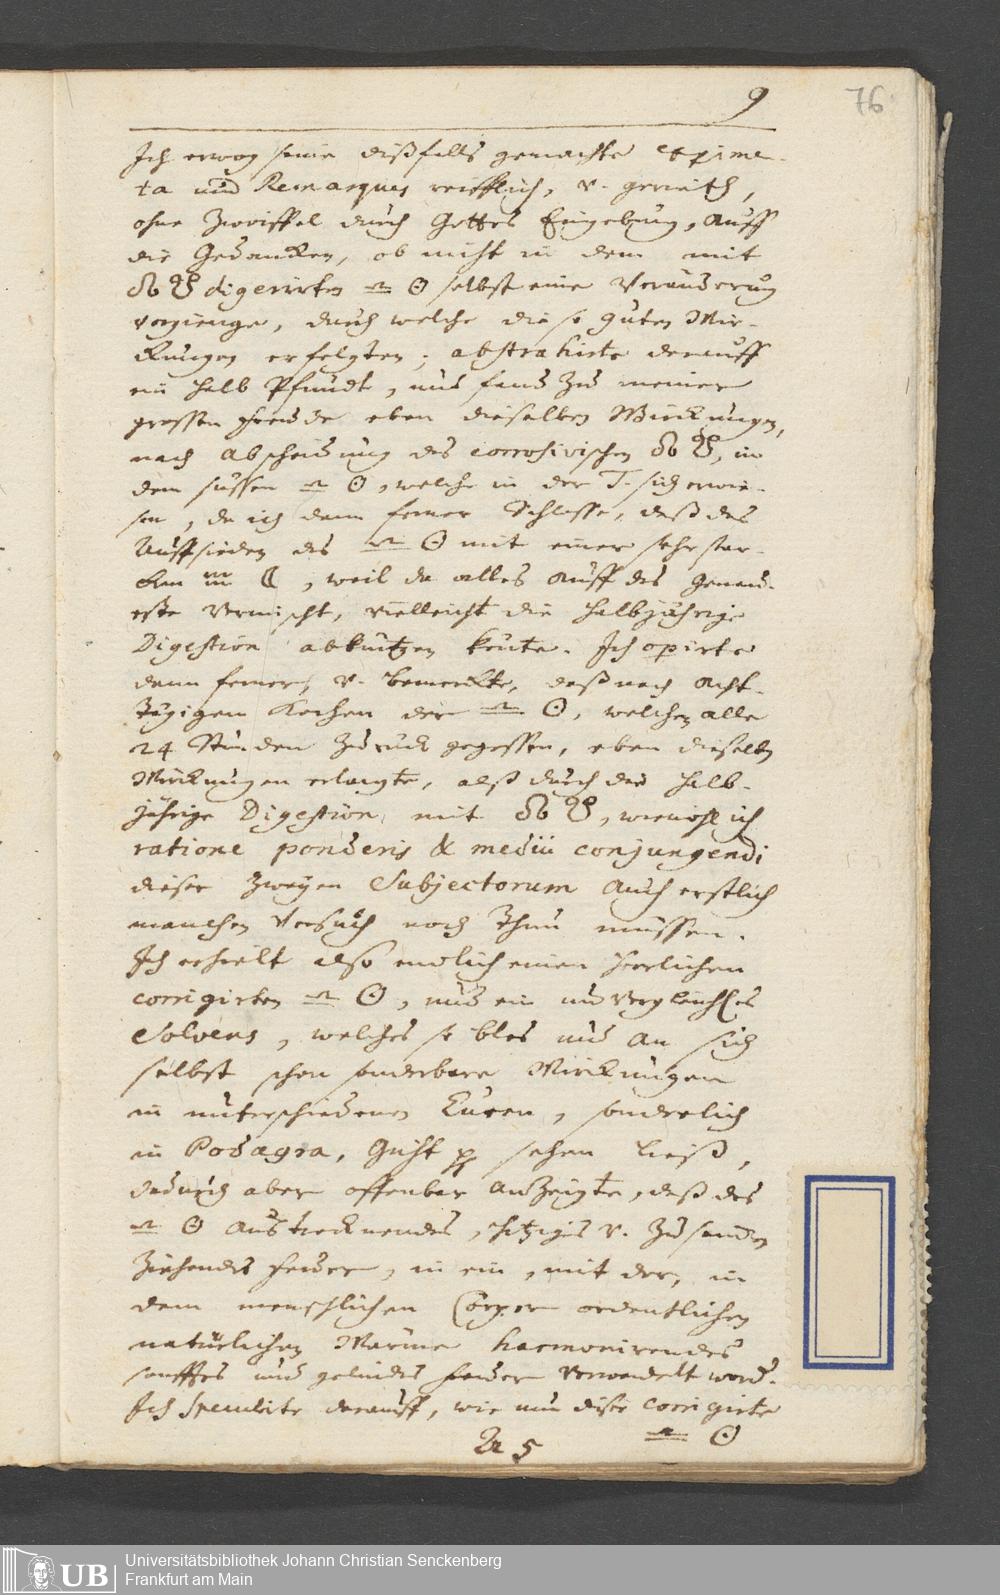 9 76
Ich erwog seine dißfalls gemachte expimen-
ta und Remarques reifflich, v. gerieth,
ohne Zweiffel durch Gottes Eingebung, auff
die Gedancken, ob nicht in dem mit
digerirten 🜔 selbst eine Veränderung
vorgienge, durch welche diese guten Wir-
kungen erfolgten; abstrahirte darauff
ein halb Pfundt, und fand zu meiner
grossen Freude eben dieselben Wirckungen,
nach Abscheidung des corrosivischen , in
dem süssen 🜔, welche in der T. sich erwie-
sen, da ich dann ferner Schlosse, daß das
Auffsieden des 🜔 mit einer sehr star-
ken , weil da alles auff das genau-
este vermischt, vielleicht die halbjährige
Digestion abkürtzen könte. Ich opirte
dann ferner, v. bemerckte, daß nach acht-
tägigen Kochen der 🜔, welchen alle
24 Stunden zurück gegossen, eben dieselbe
Wirckungen erlangte, alß durch die halb-
jährige Digestion mit , wiewohl ich
ratione ponderis & medii conjungendi
dieser zweyen Subjectorum auch erstlich
manchen Versuch noch thun müssen.
Ich erhielt also endlich einen herrlichen
corrigirten 🜔, und ein unvergleichl.es
Solvens, welches so blos und an sich
selbst schon sonderbare Wirckungen
in unterschiedenen Curen, sonderlich
in Podagra, Gicht pp sehen ließ,
dadurch aber offenbar anzeigte, daß das
🜔 austrocknendes, hitziges v. zusammen
ziehendes Feuer, in ein, mit der, in
dem menschlichen Cörper ordentlichen
natürlichen Wärme harmonirendes
sanfftes und gelindes Feuer verwandelt word.
Ich speculirte darauff, wie nun diese corrigirte
A 5 🜔
UB Universitätsbibliothek Johann Christian Senckenberg
Frankfurt am Main